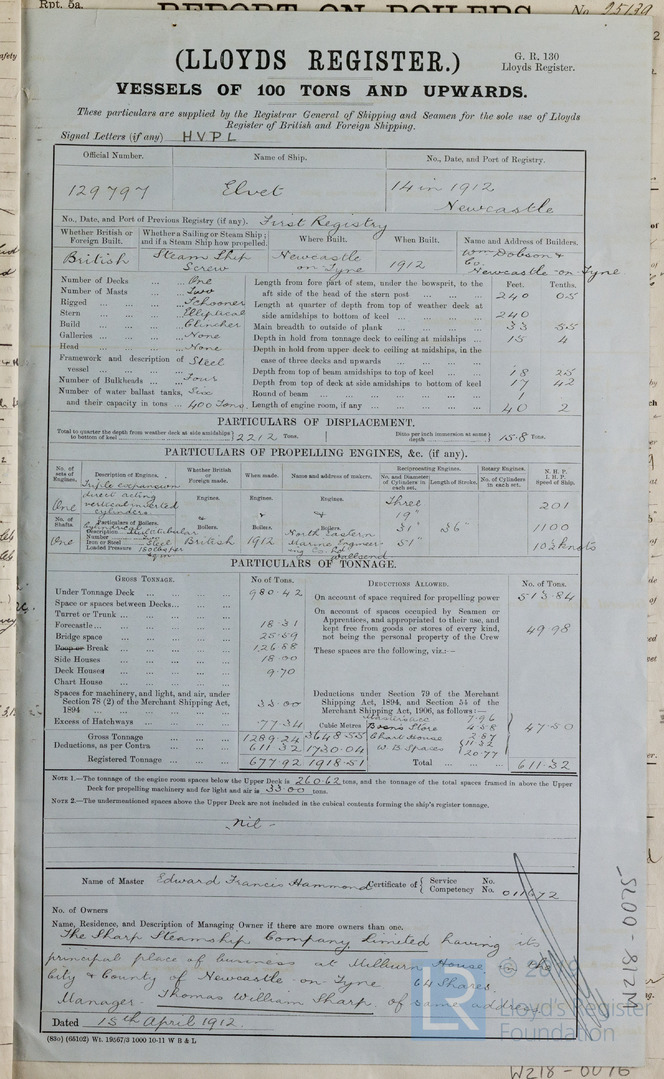 Rpt. 5a.
REPORT ON BOILERS
No. 95139
(LLOYDS REGISTER.)
G. R. 130
Lloyds Register.
VESSELS OF 100 TONS AND UPWARDS.
These particulars are supplied by the Registrar General of Shipping and Seamen for the sole use of Lloyds
Register of British and Foreign Shipping.
Signal Letters (if any) HVPL
Official Number. Name of Ship. No., Date, and Port of Registry.
129797 Elvet 14 in 1912
Newcastle
No., Date, and Port of Previous Registry (if any). First Registry
Whether British or Foreign Built. Whether a Sailing or Steam Ship; and if a Steam Ship how propelled. Where Built. When Built. Name and Address of Builders.
British Steam Ship Screw Newcastle on-Tyne 1912 Wm Dobson & Co. Newcastle-on-Tyne
Number of Decks One
Number of Masts Two
Rigged Schooner
Stern Elliptical
Build Clincher
Galleries None
Head None
Framework and description of vessel Steel
Number of Bulkheads Four
Number of water ballast tanks, and their capacity in tons Six 400 Tons
Feet. Tenths.
Length from fore part of stem, under the bowsprit, to the aft side of the head of the stern post 240 05
Length at quarter of depth from top of weather deck at side amidships to bottom of keel 240
Main breadth to outside of plank 33 55
Depth in hold from tonnage deck to ceiling at midships 15 4
Depth in hold from upper deck to ceiling at midships, in the case of three decks and upwards
Depth from top of beam amidships to top of keel 18 25
Depth from top of deck at side amidships to bottom of keel 17 42
Round of beam 1
Length of engine room, if any 40 2
PARTICULARS OF DISPLACEMENT.
Total to quarter the depth from weather deck at side amidships to bottom of keel 2212 Tons. Ditto per inch immersion at same depth 15.8 Tons.
PARTICULARS OF PROPELLING ENGINES, &c. (if any).
No. of sets of Engines. Description of Engines. Whether British or Foreign made. When made. Name and address of makers. Reciprocating Engines. No. and Diameter of Cylinders in each set. Length of Stroke. Rotary Engines. No. of Cylinders in each set. N. H. P. I. H. P. Speed of Ship.
One Triple expansion direct acting vertical inverted cylinders Engines. Engines. Engines. Three 19" 31" 51" 36" 201 1100 10½ knots
No. of Shafts One Particulars of Boilers. Description Cylindrical Multitubular
Number
Iron or Steel Steel
Loaded Pressure
Boilers. British Boilers. 1912 Boilers. North Eastern Marine Engineering Co Ltd Wallsend
PARTICULARS OF TONNAGE.
GROSS TONNAGE. No of Tons. DEDUCTIONS ALLOWED. No. of Tons.
Under Tonnage Deck 980.42
Space or spaces between Decks
Turret or Trunk
Forecastle 18.31
Bridge space 25.59
Poop or Break 126.88
Side Houses 18.00
Deck Houses 9.70
Chart House
Spaces for machinery, and light, and air, under Section 78 (2) of the Merchant Shipping Act, 1894 33.00
Excess of Hatchways 77.34
Gross Tonnage 1289.24 3648.55
Deductions, as per Contra 611.32 1730.04
Registered Tonnage 677.92 1918.51
On account of space required for propelling power 513.84
On account of spaces occupied by Seamen or Apprentices, and appropriated to their use, and kept free from goods or stores of every kind, not being the personal property of the Crew 49.98
These spaces are the following, viz.:—
Deductions under Section 79 of the Merchant Shipping Act, 1894, and Section 54 of the Merchant Shipping Act, 1906, as follows:—
Cubic Metres
Masters acc 7.96
Bosns Store 4.58
Chart House 2.87
W B Spaces 11.32 20.77
47.50
Total 611.32
NOTE 1.—The tonnage of the engine room spaces below the Upper Deck is 260.62 tons, and the tonnage of the total spaces framed in above the Upper
Deck for propelling machinery and for light and air is 33.00 tons.
NOTE 2.—The undermentioned spaces above the Upper Deck are not included in the cubical contents forming the ship's register tonnage.
Nil -
Name of Master Edward Francis Hammond Certificate of Service No. Competency No. 011672
No. of Owners
Name, Residence, and Description of Managing Owner if there are more owners than one.
The Sharp Steamship Company Limited having its
principal place of business at Milburn House in the
City & County of Newcastle-on-Tyne 64 Shares.
Manager - Thomas William Sharp, of same address
Dated 15th April 1912.
(830) (65102) Wt. 19567/3 1000 10-11 W B & L
LR
© Lloyd's Register
Foundation
W218-0076